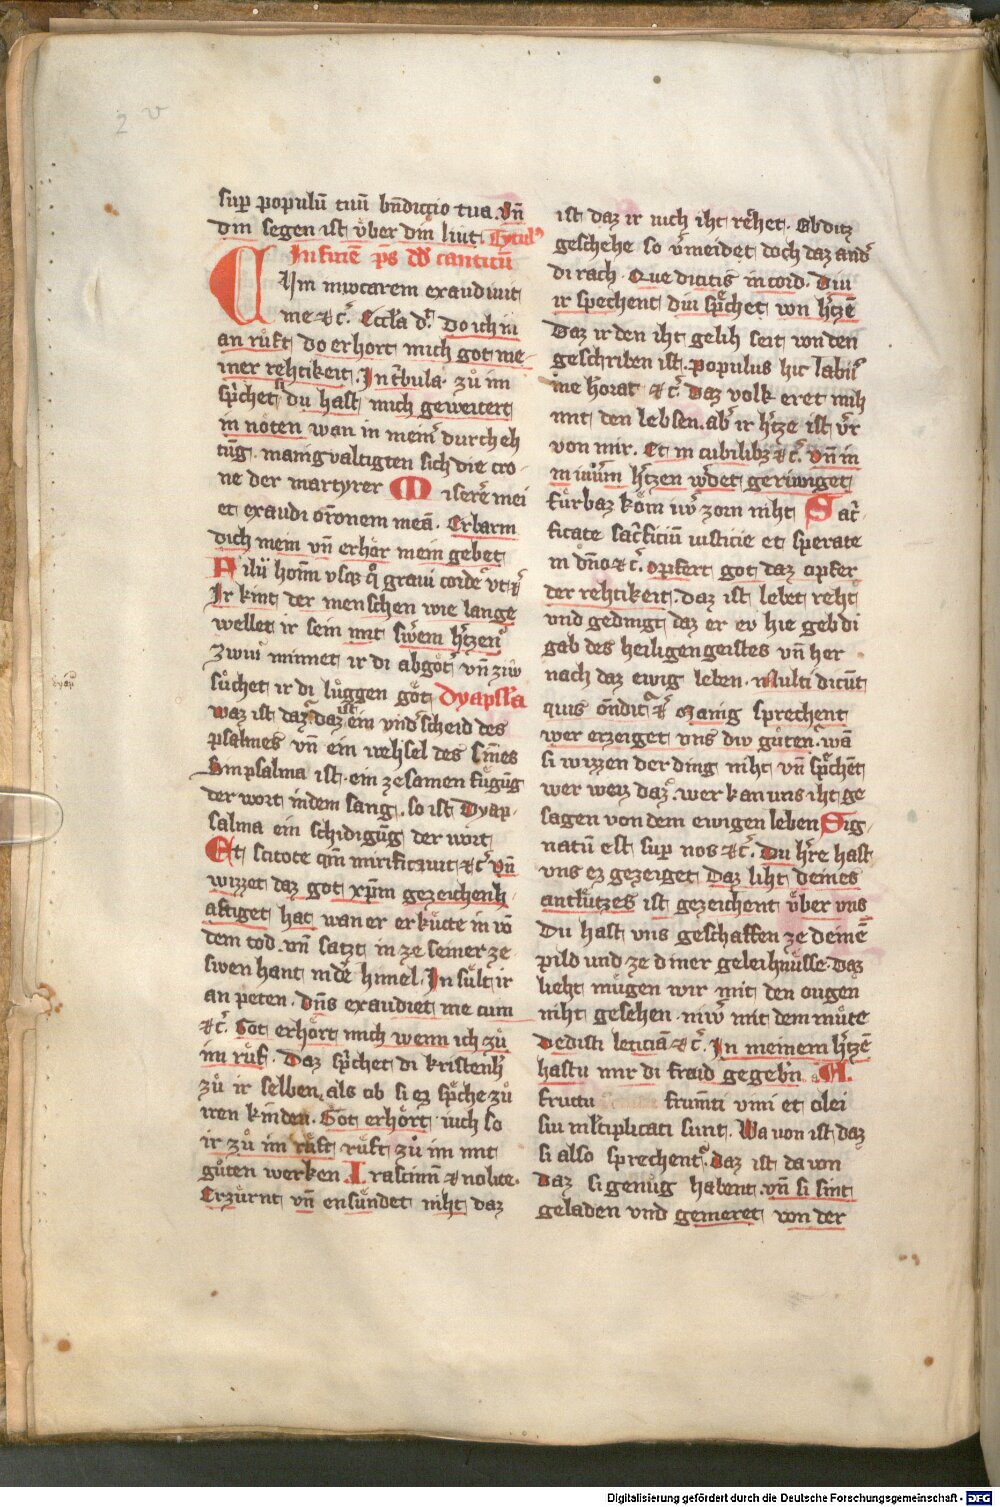 2 v
sup̄ populū tuū bn̄dictio tua. Vn̄
din segen ist v̊ber din liut Tytul9
In finē ps̄ dd̄ canticū
Cvm inuocarem exaudiuit
me ⁊c̄. Eccl̄ia d͛. Do ich in
an růft do erhort mich got me
iner rehtikeit. In t͛bula. zů im
sp͛ichet si du hast mich geweitert
in nöten wan in mein͛ durcheh
tūg. manigvaltigten sich die cro
ne der martyrer Miserē mei
et exaudi or̄onem meā. Erbarm
dich mein vn̄ erhör mein gebet
Filii homī vsq; q̊ graui corde vt q͛
Ir kint der menschen wie lange
wellet ir sein mit sw͛em h͛tzen
zwiu minnet ir di abgöt͛ vn̄ ziw
sůchet ir di luggen göt Dyapsl̄a
waz ist daz. daz ist ein vnd͛scheid des
psalmes vn̄ ein wehsel des sīnes
Sinpsalma ist. ein zesamen fůgūg
der wort indem sang. so ist Dyap
salma ein schidigūg der wort
Et scitote qm̄ mirificauit ⁊c͛ vn̄
wizzet daz got xp̄m gezeichenh
aftiget hat wan er erkucte in vō
dem tod. vn̄ satzt in ze seiner ze
swen hant in de͛ himel. In sult ir
an peten. Dn̄s exaudiet me cum
⁊c͛. Got erhört mich wenn ich zů
im růf. Daz sp͛ichet di kristenh͛
zů ir selben, als ob si ez sp͛che zů
iren kinden. Got erhört iuch so
ir zů im růft růft zů im mit
guten werken Irascimī ⁊ nolite.
Erzurnt vn̄ ensundet niht daz
ist daz ir iuch iht rehet. Ob ditz
geschehe so v͛meidet doch daz and͛
di rach. Que dicitis in cord. Diu
ir spechent diu sp͛chet von h͛tzē
Daz ir den iht gelih seit von den
geschriben ist. Populus hic labii9
me horat ⁊c͛. Daz volk eret mih
mit den lebsen. ab͛ ir h͛tze ist v͛r
von mir. Et in cubilib; ⁊c͛. Vn̄ in
in iuw͛m h͛tzen w͛det geriwiget
fürbaz köm iw͛ zorn niht Sac͛
ficate sac͛ficiū iusticie et sperate
in dn̄o ⁊c͛. Opfert got daz opfer
der rehtikeit. daz ist lebet reht
vnd gedingt daz er ev hie geb di
gab des heiligen geistes vn̄ her
nach daz ewig leben. Multi dicūt
quis ōndit ⁊c͛ Manig sprechent
wer erzeiget vns div guten. wā
si wizzen der ding niht vn̄ sp͛chēt
wer weiz daz. wer kan uns iht ge
sagen von dem ewigen leben Sig
natū est sup̄ nos ⁊c͛. Du h͛re hast
vns ez gezeiget Daz liht deines
antlützes ist gezeichent v̊ber vns
Du hast vns geschaffen ze deinē
pild und ze diner geleihnüsse. Daz
lieht mügen wir mit den ougen
niht gesehen. niw͛ mit dem můte
Dedisti leticiā ⁊c͛. In meinem h͛tzē
hastu mir di fraid gegebn̄. A
fructu frum̄ti vini et olei
sui ml̄tiplicati sunt. Wa von ist daz
si also sprechent. Daz ist da von
Daz si genůg habent. vn̄ si sint
geladen vnd gemeret von der
Digitalisierung gefördert durch die Deutsche Forschungsgemeinschaft - DFG